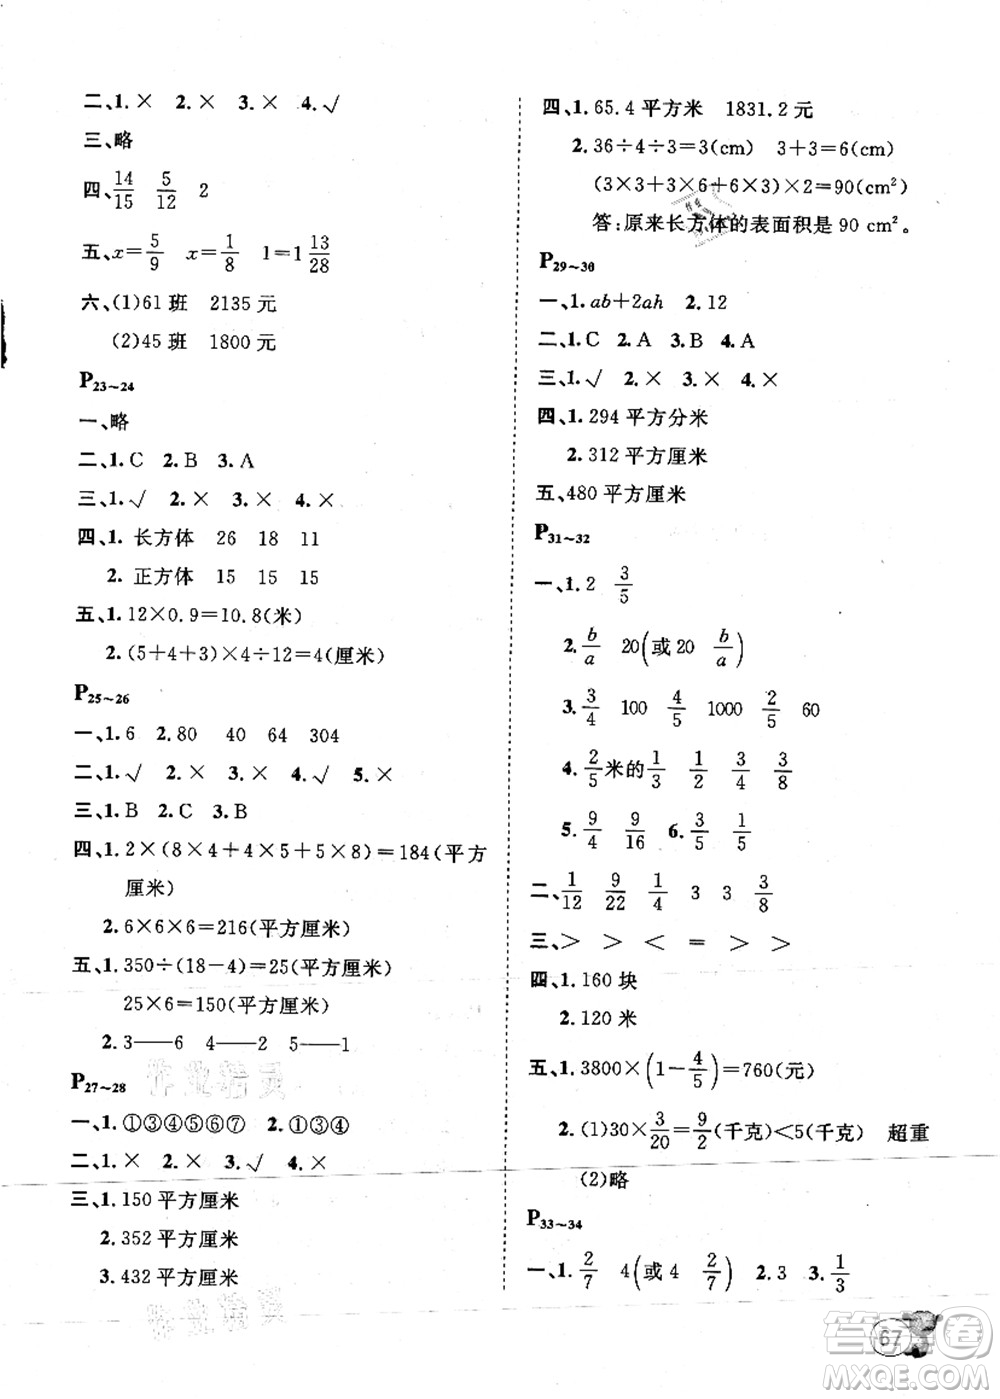 二、1.× 2.× 3.× 4.√
三、略
四、14/15 5/12 2
五、x=5/9 x=1/8 1=1 13/28
六、(1)61 班 2135 元
(2)45 班 1800 元
P23~24
一、略
二、1.C 2.B 3.A
三、1.√ 2.× 3.× 4.×
四、1.长方体 26 18 11
2.正方体 15 15 15
五、1.12×0.9=10.8(米)
2.(5+4+3)×4÷12=4(厘米)
P25~26
一、1.6 2.80 40 64 304
二、1.√ 2.× 3.× 4.√ 5.×
三、1.B 2.C 3.B
四、1.2×(8×4+4×5+5×8)=184(平方
厘米)
2.6×6×6=216(平方厘米)
五、1.350÷(18-4)=25(平方厘米)
25×6=150(平方厘米)
2.3——6 4——2 5——1
P27~28
一、1.①③④⑤⑥⑦ 2.①③④
二、1.× 2.× 3.√ 4.×
三、1.150 平方厘米
2.352 平方厘米
3.432 平方厘米
四、1.65.4 平方米 1831.2 元
2.36÷4÷3=3(cm) 3+3=6(cm)
(3×3+3×6+6×3)×2=90(cm²)
答:原来长方体的表面积是 90 cm²。
P29~30
一、1.ab+2ah 2.12
二、1.C 2.A 3.B 4.A
三、1.√ 2.× 3.× 4.×
四、1.294 平方分米
2.312 平方厘米
五、480 平方厘米
P31~32
一、1.2 3/5
2.b/a 20(或20 b/a)
3.3/4 100 4/5 1000 2/5 60
4.2/5米的1/3 1/2 3/4 3/8
5.9/4 9/16 6.3/5 1/5
二、1/12 9/22 1/4 3 3 3/8
三、> > < = > >
四、1.160 块
2.120 米
五、1.3800×(1-4/5)=760(元)
2.(1)30×3/20=9/2(千克)<5(千克) 超重
(2)略
P33~34
一、1.2/7 4(或4 2/7) 2.3 1/3
67
答案圈
MXQE.COM
作业精灵